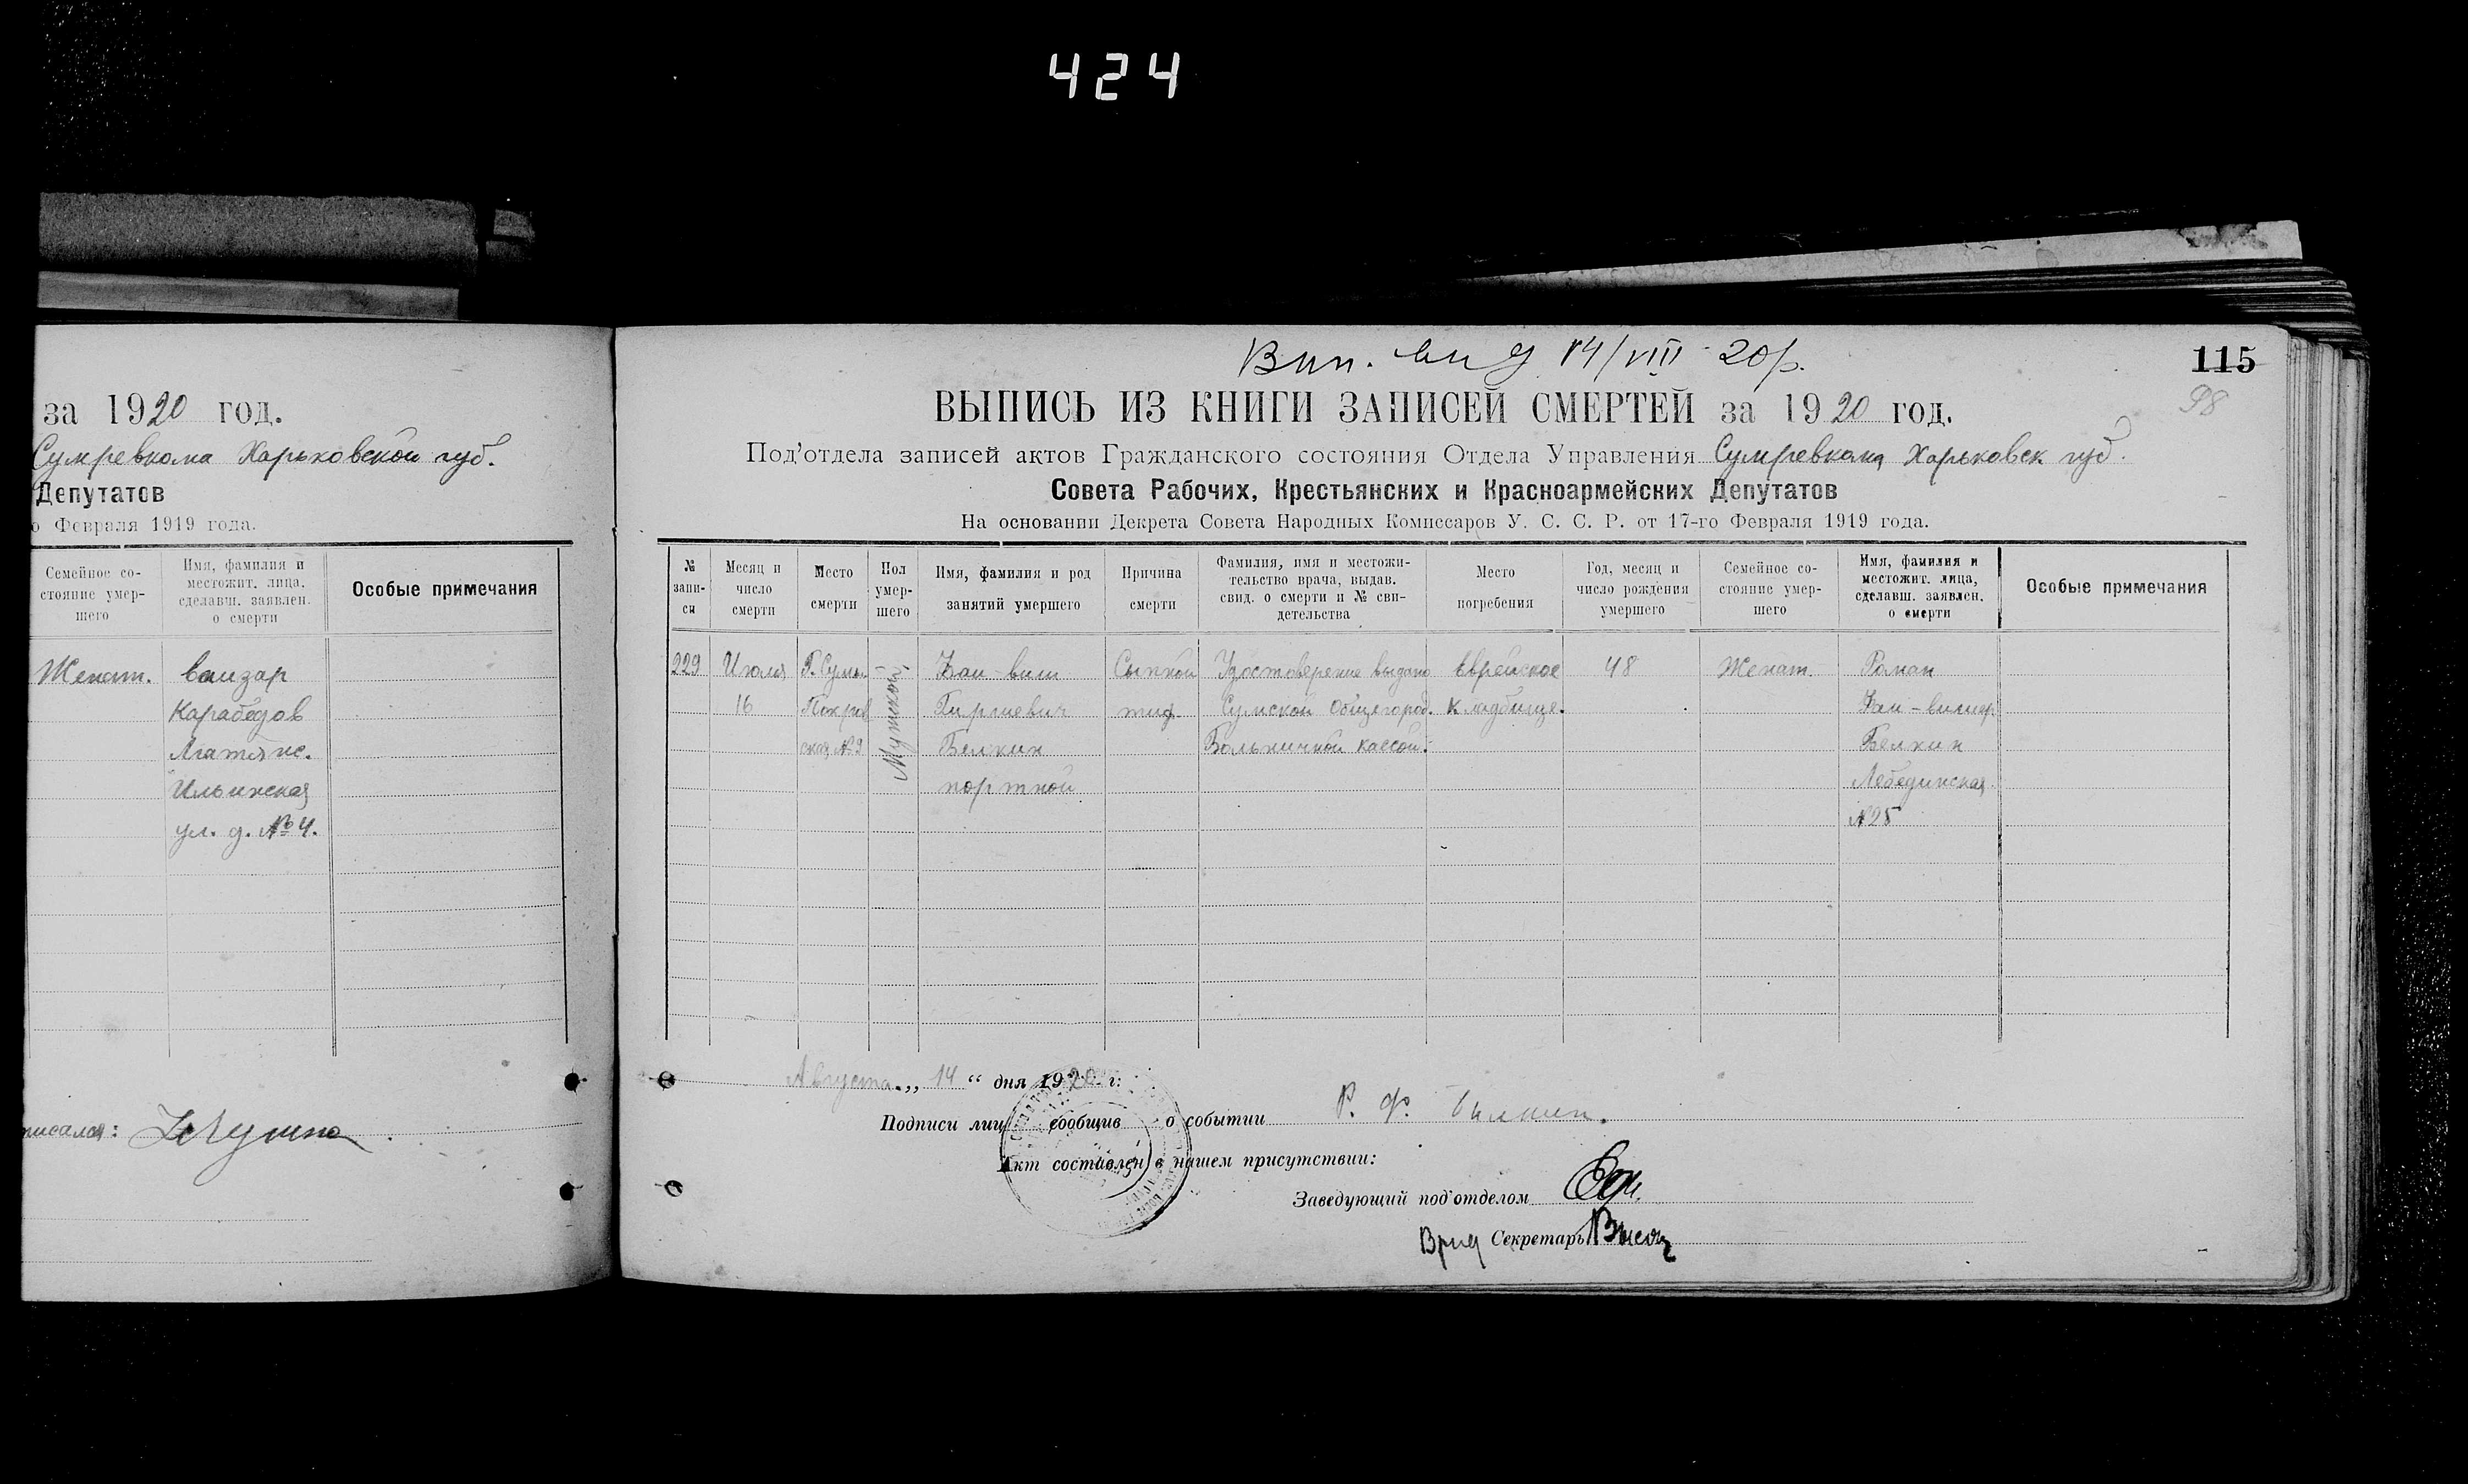 424
за 1920 год.
Сумревкома Харьковской губ.
Депутатов
о Февраля 1919 года.
Семейное со-
стояние умер-
шего
Имя, фамилия и
местожит. лица,
сделавш. заявлен.
о смерти
Особые примечания
Женат.
Карабедов
Ильинская
ул. д. №4.
писался:
14/VIII 20р.
115
98
ВЫПИСЬ ИЗ КНИГИ ЗАПИСЕЙ СМЕРТЕЙ за 1920 год.
Под'отдела записей актов Гражданского состояния Отдела Управления Сумревкома Харьковск губ.
Совета Рабочих, Крестьянских и Красноармейских Депутатов
На основании Декрета Совета Народных Комиссаров У. С. С. Р. от 17-го Февраля 1919 года.
№
запи-
си
Месяц и
число
смерти
Место
смерти
Пол
умер-
шего
Имя, фамилия и род
занятий умершего
Причина
смерти
Фамилия, имя и местожи-
тельство врача, выдав.
свид. о смерти и № сви-
детельства
Место
погребения
Год, месяц и
число рождения
умершего
Семейное со-
стояние умер-
шего
Имя, фамилия и
местожит. лица,
сделавш. заявлен.
о смерти
Особые примечания
229
Июля
16
Г. Сумы
Покров
ская №9
Мужской
Белкин
портной
Сыпной
тиф
Удостоверение выдано
Сумской Общегород.
Больничной кассой.
Еврейское
кладбище.
48
Женат.
Роман
Белкин
Лебединская
№25
Августа „ 14 “ дня 1920 г.
Подписи лиц сообщив о событии Р. Ф. Билкин.
Акт составлен в нашем присутствии:
Заведующий под'отделом
Врид Секретарь